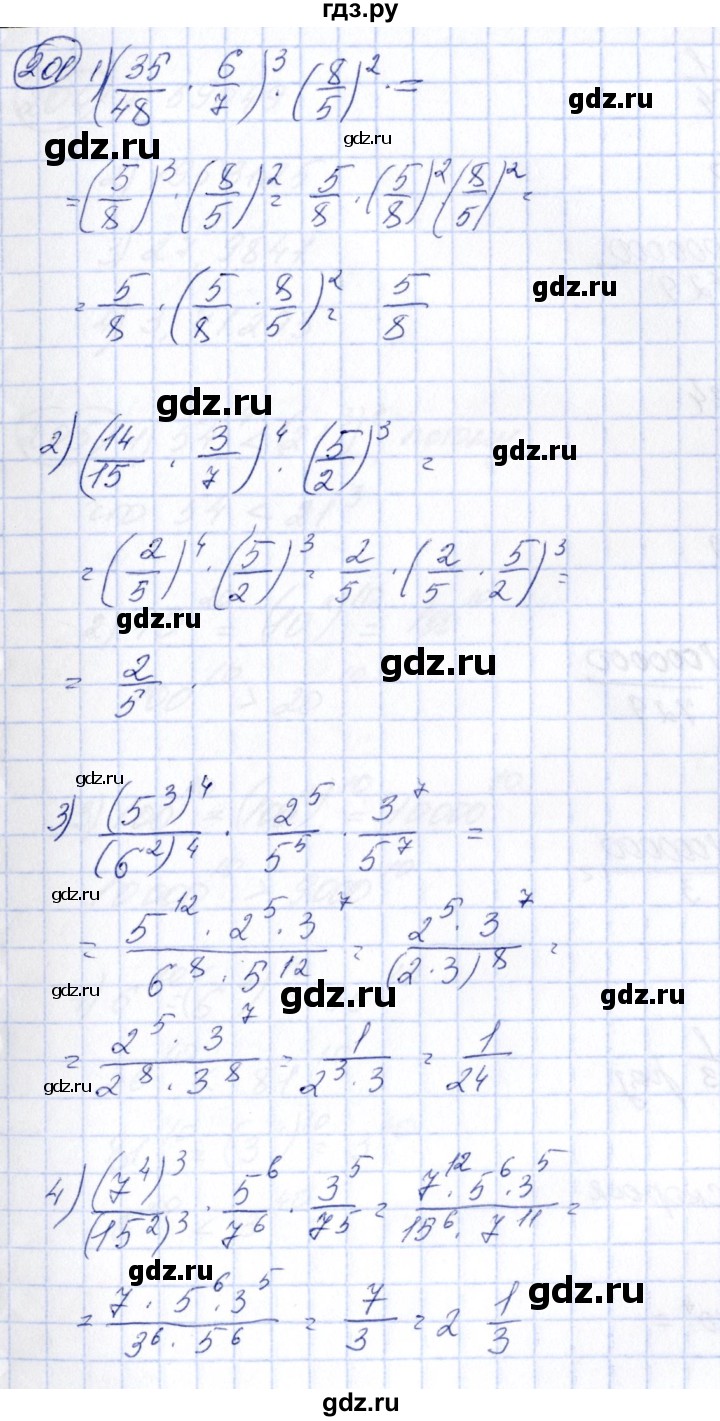 гдз.ру
200 1) (35/48 · 6/7)³ · (8/5)² · =
gdz.ru
gdz.ru
gdz.ru
= (5/8)³ · (8/5)² = 5/8 · (5/8)² · (8/5)² =
gdz.ru
= 5/8 · (5/8 · 8/5)² = 5/8
gdz.ru
gdz.ru
2) (14/15 · 3/7)⁴ · (5/2)³ =
gdz.ru
= (2/5)⁴ · (5/2)³ = 2/5 · (2/5 · 5/2)³ =
gdz.ru
= 2/5 .
gdz.ru
gdz.ru
3) (5³)⁴/(6²)⁴ · 2⁵/5⁵ · 3⁷/5⁷ =
gdz.ru
= 5¹² · 2⁵ · 3⁷/6⁸ · 5¹² = 2⁵ · 3⁷/(2·3)⁸ =
gdz.ru
gdz.ru
gdz.ru
= 2⁵ · 3⁷/2⁸ · 3⁸ = 1/2³ · 3 = 1/24
gdz.ru
4) (7⁴)³/(15²)³ · 5⁶/7⁶ · 3⁵/75 = 7¹² · 5⁶ · 3⁵/15⁶ · 7¹¹ =
gdz.ru
gdz.ru
= 7 · 5⁶ · 3⁵/3⁶ · 5⁶ = 7/3 = 2 1/3
gdz.ru